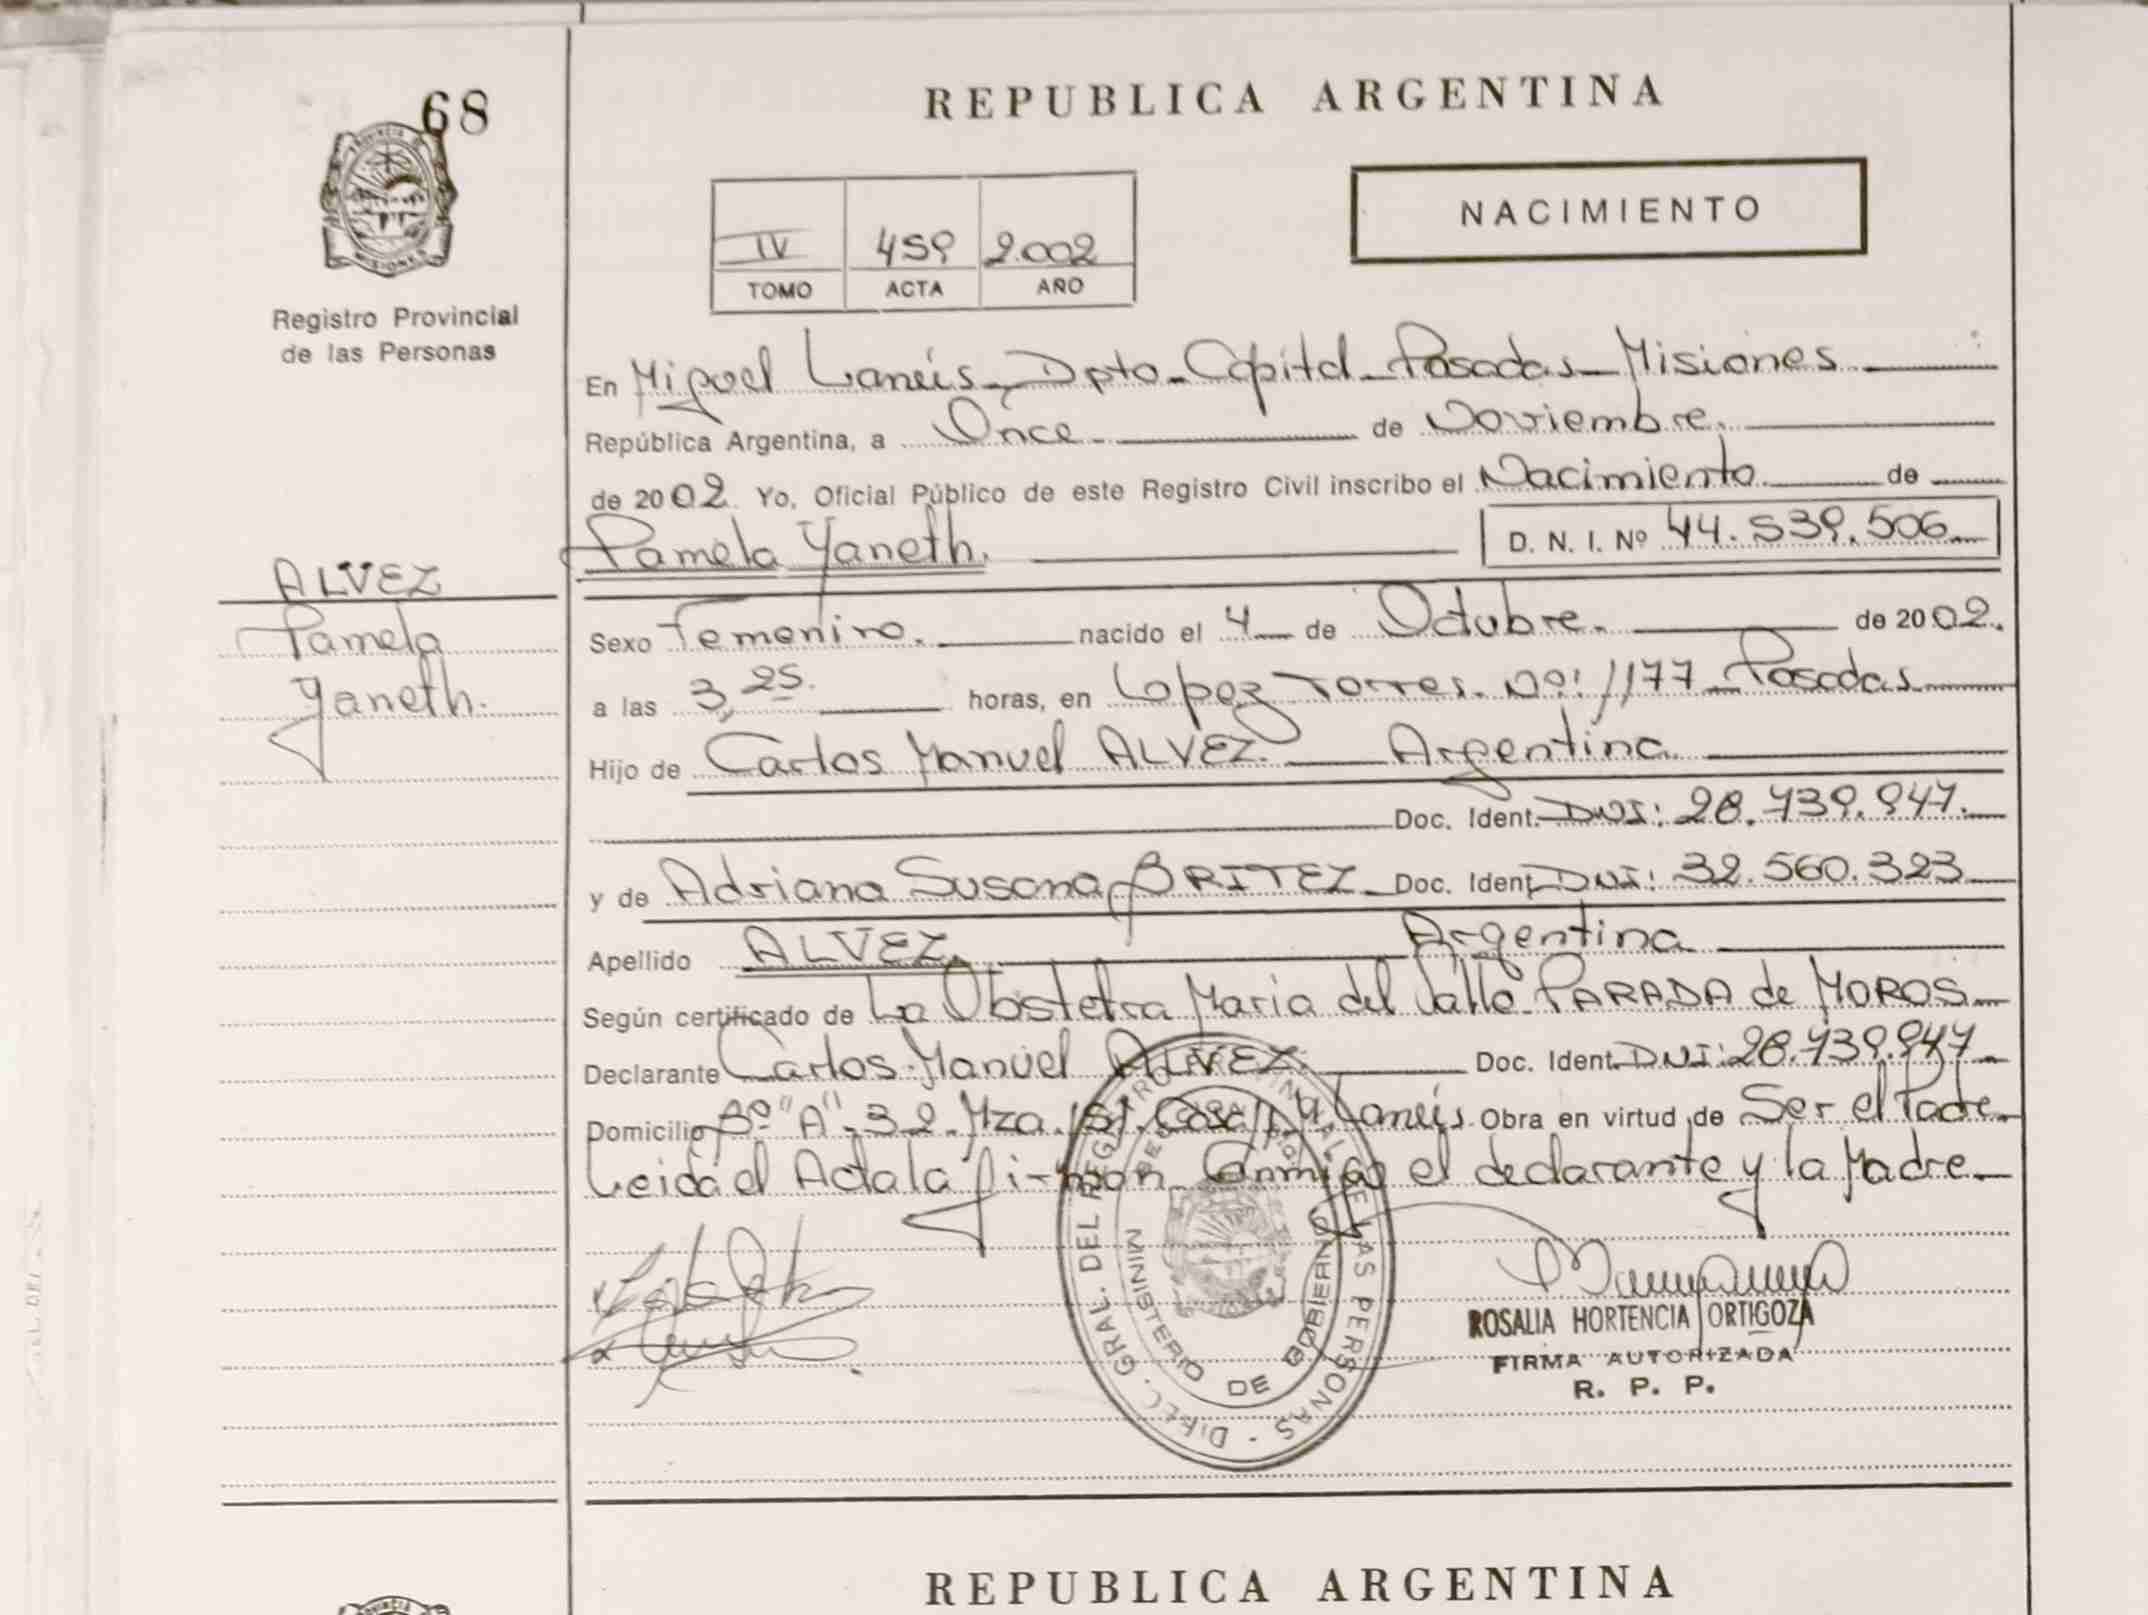 68
REPUBLICA ARGENTINA
NACIMIENTO
IV 459 2.002
TOMO ACTA AÑO
Registro Provincial
de las Personas
En Miguel Lanús - Dpto - Capital - Posadas - Misiones
República Argentina, a Once de Noviembre.
de 2002. Yo, Oficial Público de este Registro Civil inscribo el Nacimiento de
Pamela Yaneth. D. N. I. Nº 44.539.506
ALVEZ
Pamela
Yaneth.
Sexo Femenino. nacido el 4 de Octubre. de 2002.
a las 3,25. horas, en Lopez Torres. Nº: 1177 Posadas
Hijo de Carlos Manuel ALVEZ. Argentina
Doc. Ident. DNI: 28.739.947.
y de Adriana Susana BRITEZ Doc. Ident. DNI: 32.560.323
Apellido ALVEZ. Argentina
Según certificado de La Obstetra Maria del Valle PARADA de MOROS
Declarante Carlos Manuel ALVEZ. Doc. Ident. DNI: 28.739.947
Domicilio Bº "A" 32. Mza. Casa Lanús. Obra en virtud de Ser el Padre
Leida el Acta la firman Conmigo el declarante y la Madre
DIREC. GRAL. DEL REGISTRO PROVINCIAL DE LAS PERSONAS
MINISTERIO DE GOBIERNO
ROSALIA HORTENCIA ORTIGOZA
FIRMA AUTORIZADA
R. P. P.
REPUBLICA ARGENTINA